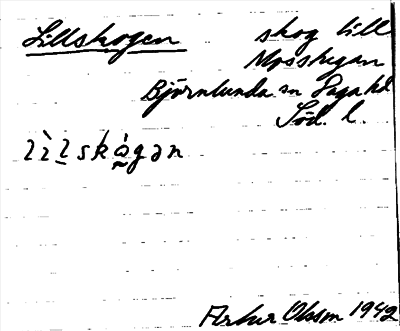 Lillskogen
skog till
Mosstugan
Björnlunda sn Daga hd
Söd. l.
lìlskògan
Arthur Olsson 1942